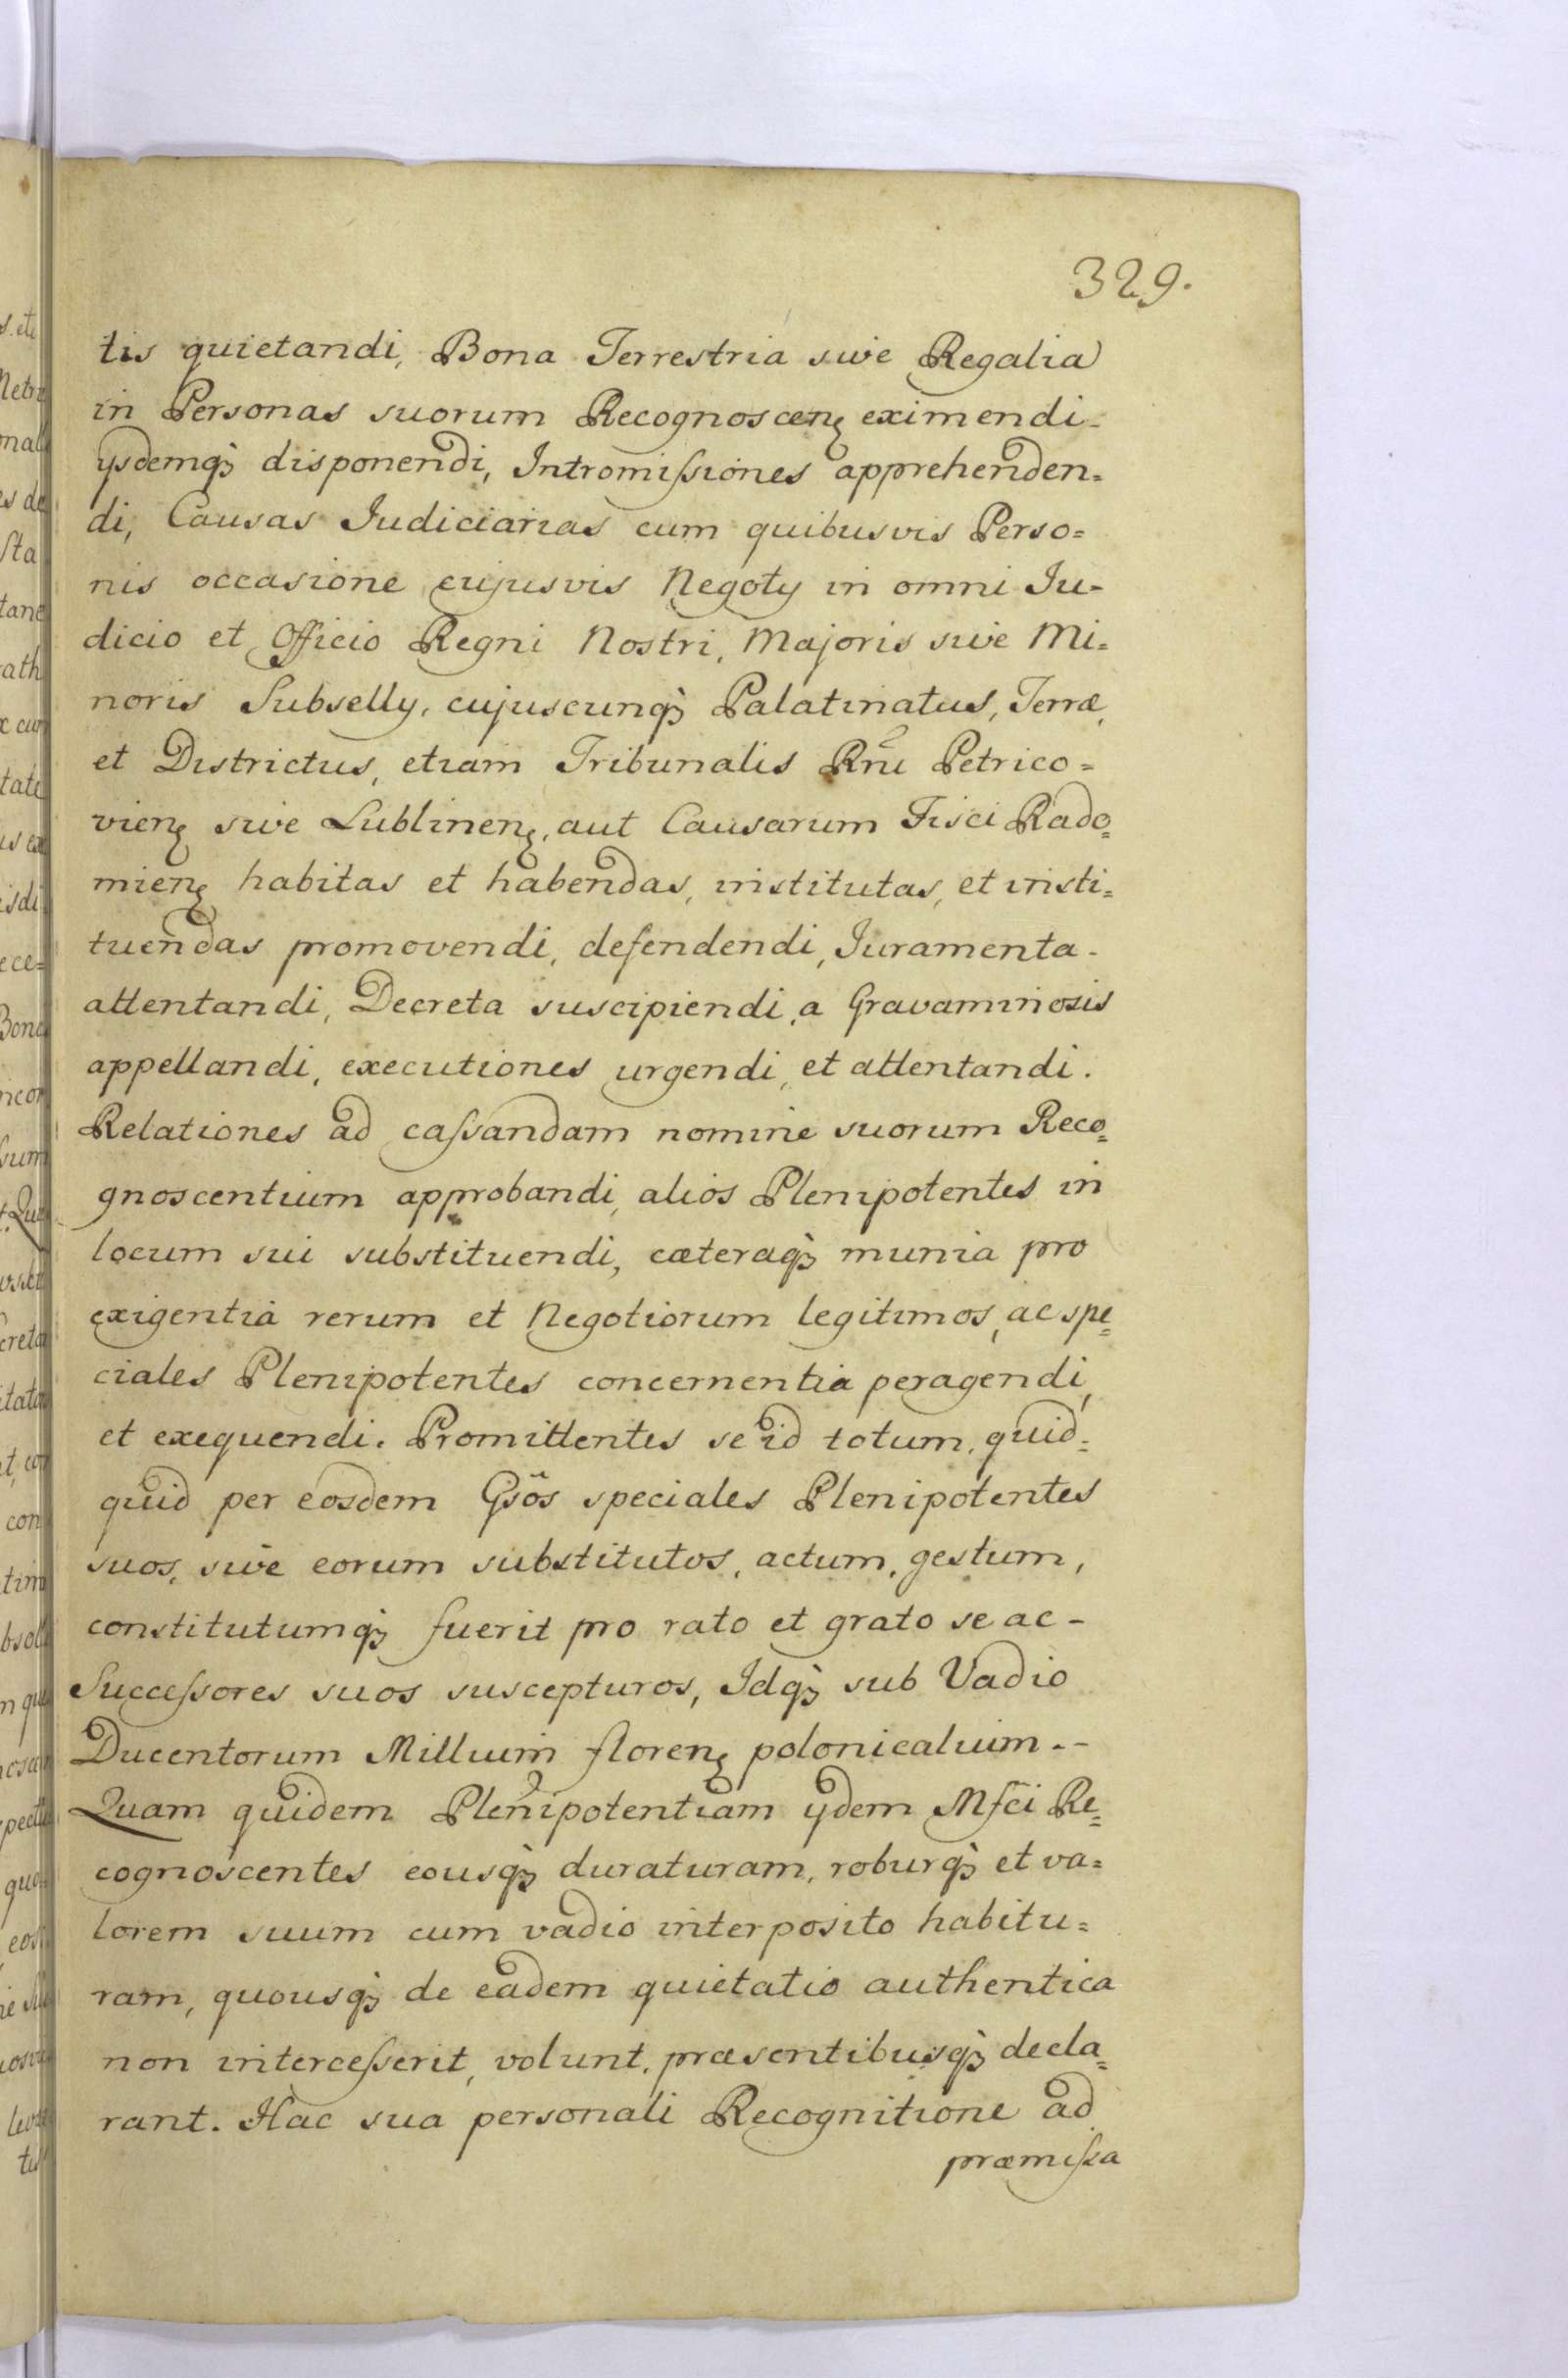 329.
tis quietandi, Bona Terrestria sive Regalia
in Personas suorum Recognoscenꝫ eximendi-
ysdemqꝫ disponendi, Intromiſsiones apprehenden=
di, Causas Judiciarias cum quibusvis Perso=
nis occasione cujusvis Negoty in omni Ju-
dicio et Officio Regni Nostri, Majoris sive Mi=
noris Subselly, cujuscunqꝫ Palatinatus, Terræ,
et Districtus, etiam Tribunalis Rñi Petrico=
vienꝫ sive Lublinenꝫ, aut Causarum Fisci Rado=
mienꝫ habitas et habendas, institutas, et insti=
tuendas promovendi, defendendi, Juramenta-
attentandi, Decreta suscipiendi, a Gravaminosis
appellandi, executiones urgendi, et attentandi.
Relationes ad caſsandam nomine suorum Reco=
gnoscentium approbandi, alios Plenipotentes in
locum sui substituendi, cæteraqꝫ munia pro
exigentia rerum et Negotiorum legitimos, ac spe=
ciales Plenipotentes concernentia peragendi,
et exequendi. Promittentes se id totum, quid=
quid per eosdem Gsõs speciales Plenipotentes
suos, sive eorum substitutos, actum, gestum,
constitutumqꝫ fuerit pro rato et grato se ac-
Succeſsores suos suscepturos, Idqꝫ sub Vadio
Ducentorum Millium florenꝫ polonicalium.-
Quam quidem Plenipotentiam ydem Mfci Re=
cognoscentes eousqꝫ duraturam, roburqꝫ et va=
lorem suum cum vadio interposito habitu=
ram, quousqꝫ de eadem quietatio authentica
non interceſserit, volunt, præsentibusqꝫ decla=
rant. Hac sua personali Recognitione ad
præmiſsa